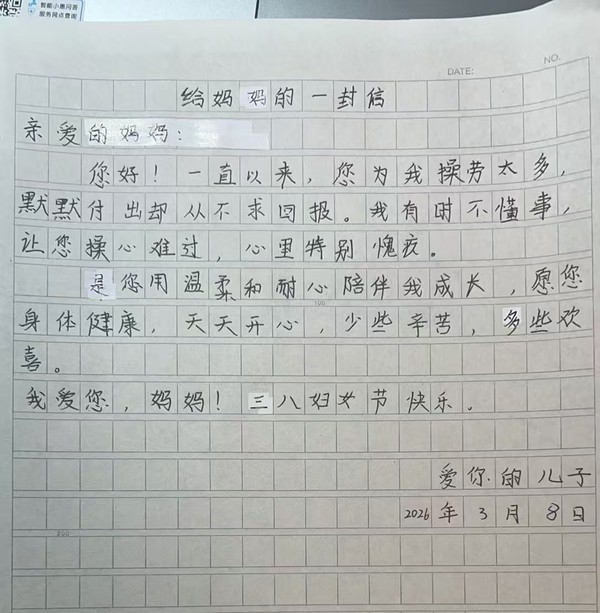 智能小惠问答
服务网点查询
DATE:
NO.
给妈妈的一封信
亲爱的妈妈：
您好！一直以来，您为我操劳太多，
默默付出却从不求回报。我有时不懂事，
让您操心难过，心里特别愧疚。
是您用温柔和耐心陪伴我成长，愿您
100
身体健康，天天开心，少些辛苦，多些欢
喜。
我爱您，妈妈！三八妇女节快乐．
爱你的儿子
2026年3月8日
200